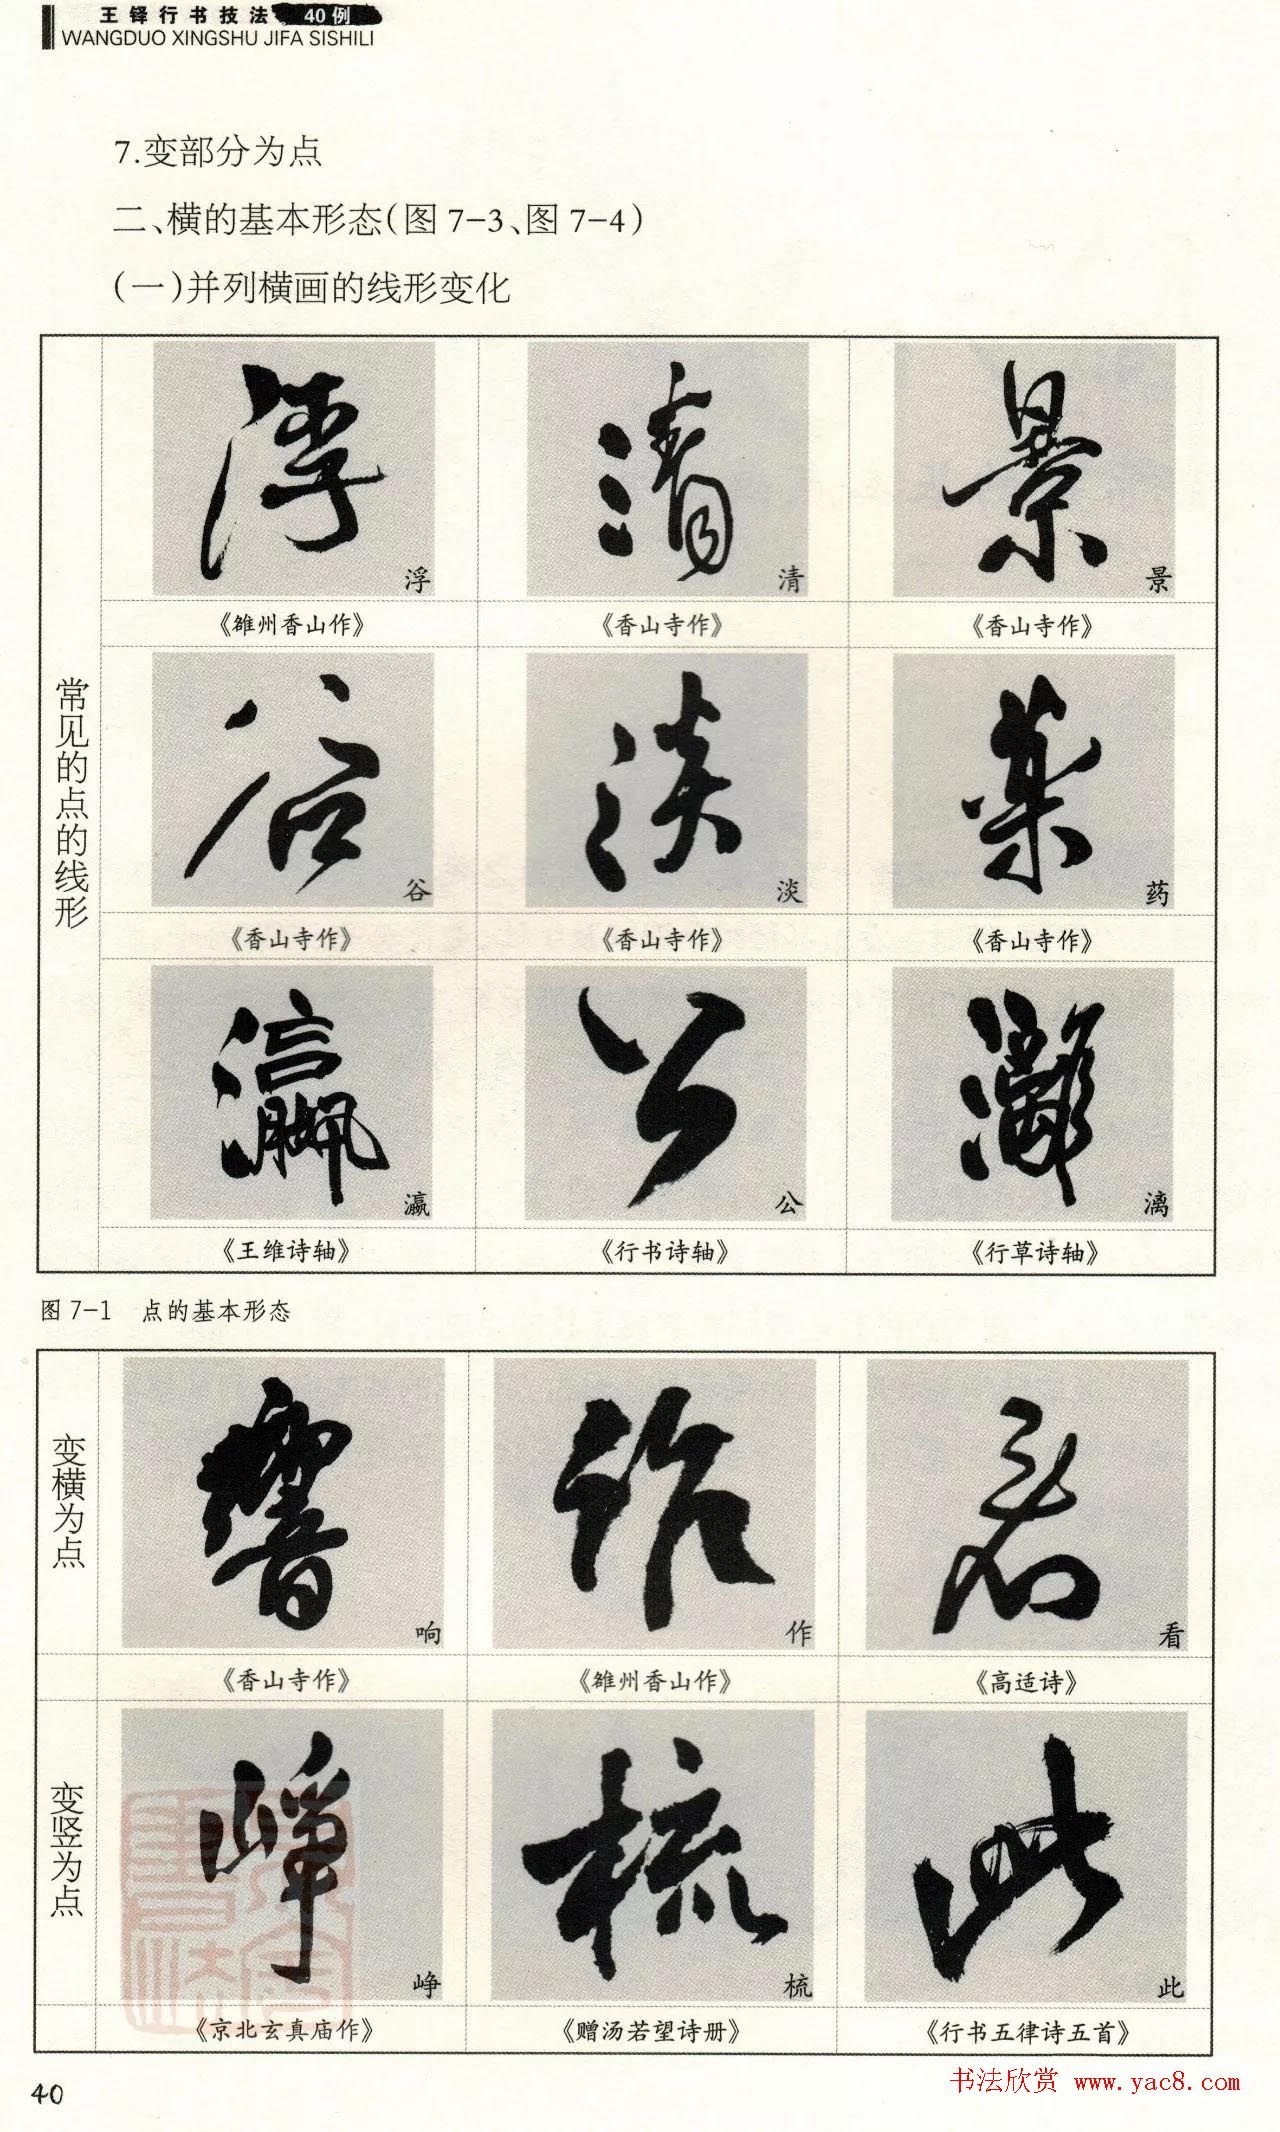 王铎行书技法 40例
WANGDUO XINGSHU JIFA SISHILI
7.变部分为点
二、横的基本形态(图7-3、图7-4)
(一)并列横画的线形变化
常见的点的线形
浮 清 景
《雒州香山作》 《香山寺作》 《香山寺作》
谷 淡 药
《香山寺作》 《香山寺作》 《香山寺作》
瀛 公 漓
《王维诗轴》 《行书诗轴》 《行草诗轴》
图7-1 点的基本形态
变横为点
响 作 看
《香山寺作》 《雒州香山作》 《高适诗》
变竖为点
峥 梳 此
《京北玄真庙作》 《赠汤若望诗册》 《行书五律诗五首》
40
书法欣赏 www.yac8.com